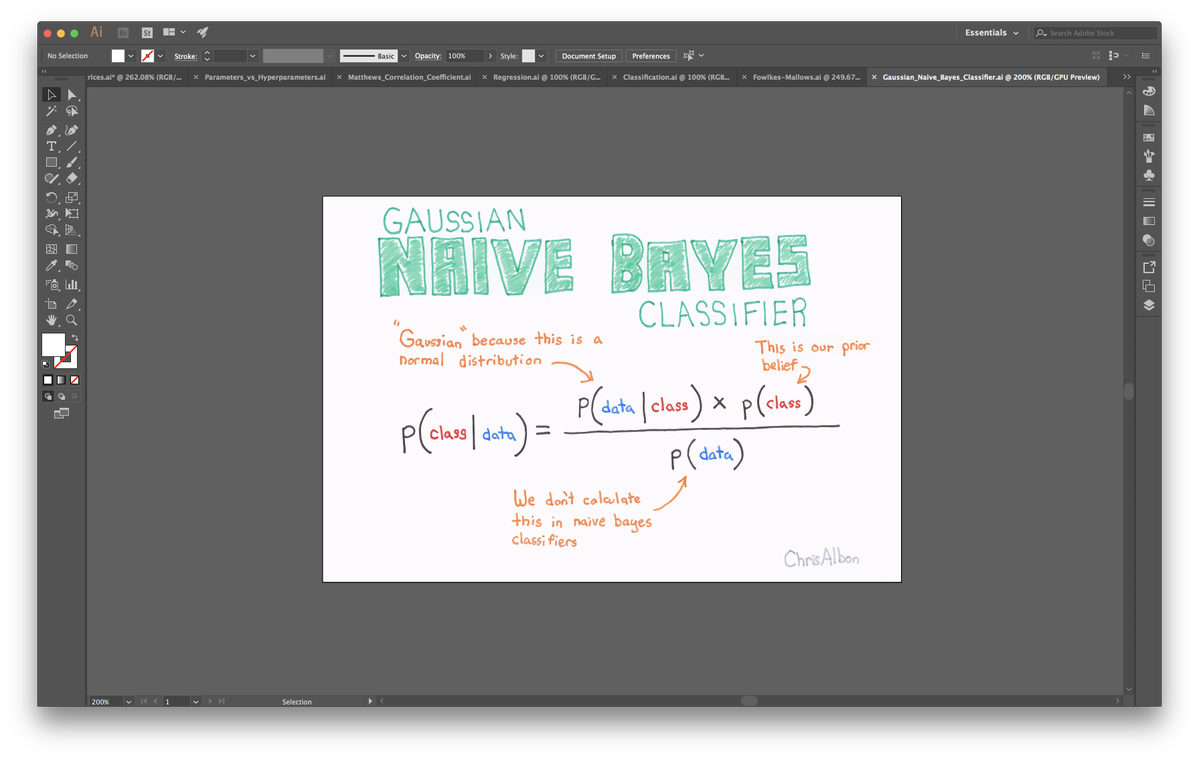 Ai Br St
Essentials
Search Adobe Stock
No Selection Stroke: Basic Opacity: 100% Style: Document Setup Preferences
rices.ai* @ 262.08% (RGB/... × Parameters_vs_Hyperparameters.ai × Matthews_Correlation_Coefficient.ai × Regression.ai @ 100% (RGB/G... × Classification.ai @ 100% (RGB... × Fowlkes-Mallows.ai @ 249.67... × Gaussian_Naive_Bayes_Classifier.ai @ 200% (RGB/GPU Preview)
GAUSSIAN
NAIVE BAYES
CLASSIFIER
"Gaussian" because this is a
normal distribution
This is our prior
belief
P(class|data) = P(data|class) × P(class)
P(data)
We don't calculate
this in naive bayes
classifiers
ChrisAlbon
200% 1 Selection